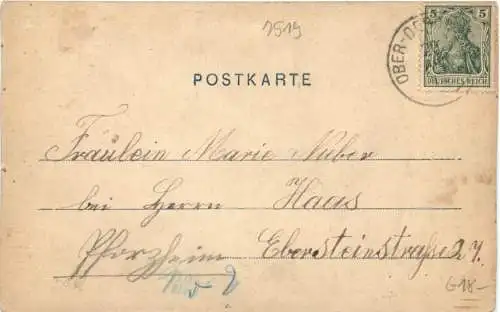 7519
POSTKARTE
5 5
DEUTSCHES REICH
OBER-
Fräulein Marie Huber
bei Herrn Haas
Pforzheim Ebersteinstraße 27.
G18-